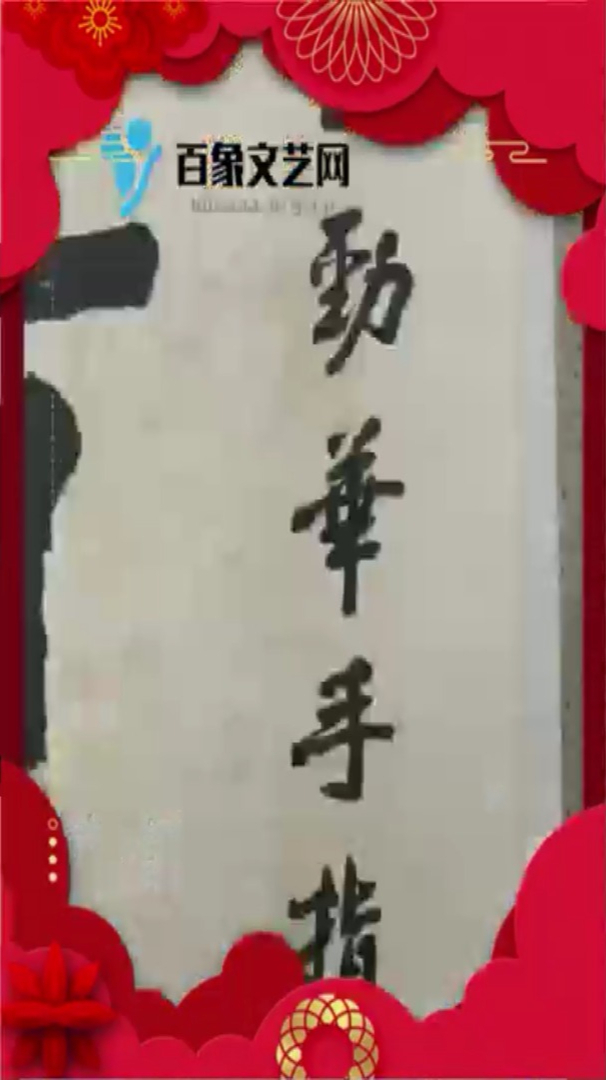 百象文艺网
勁華手指